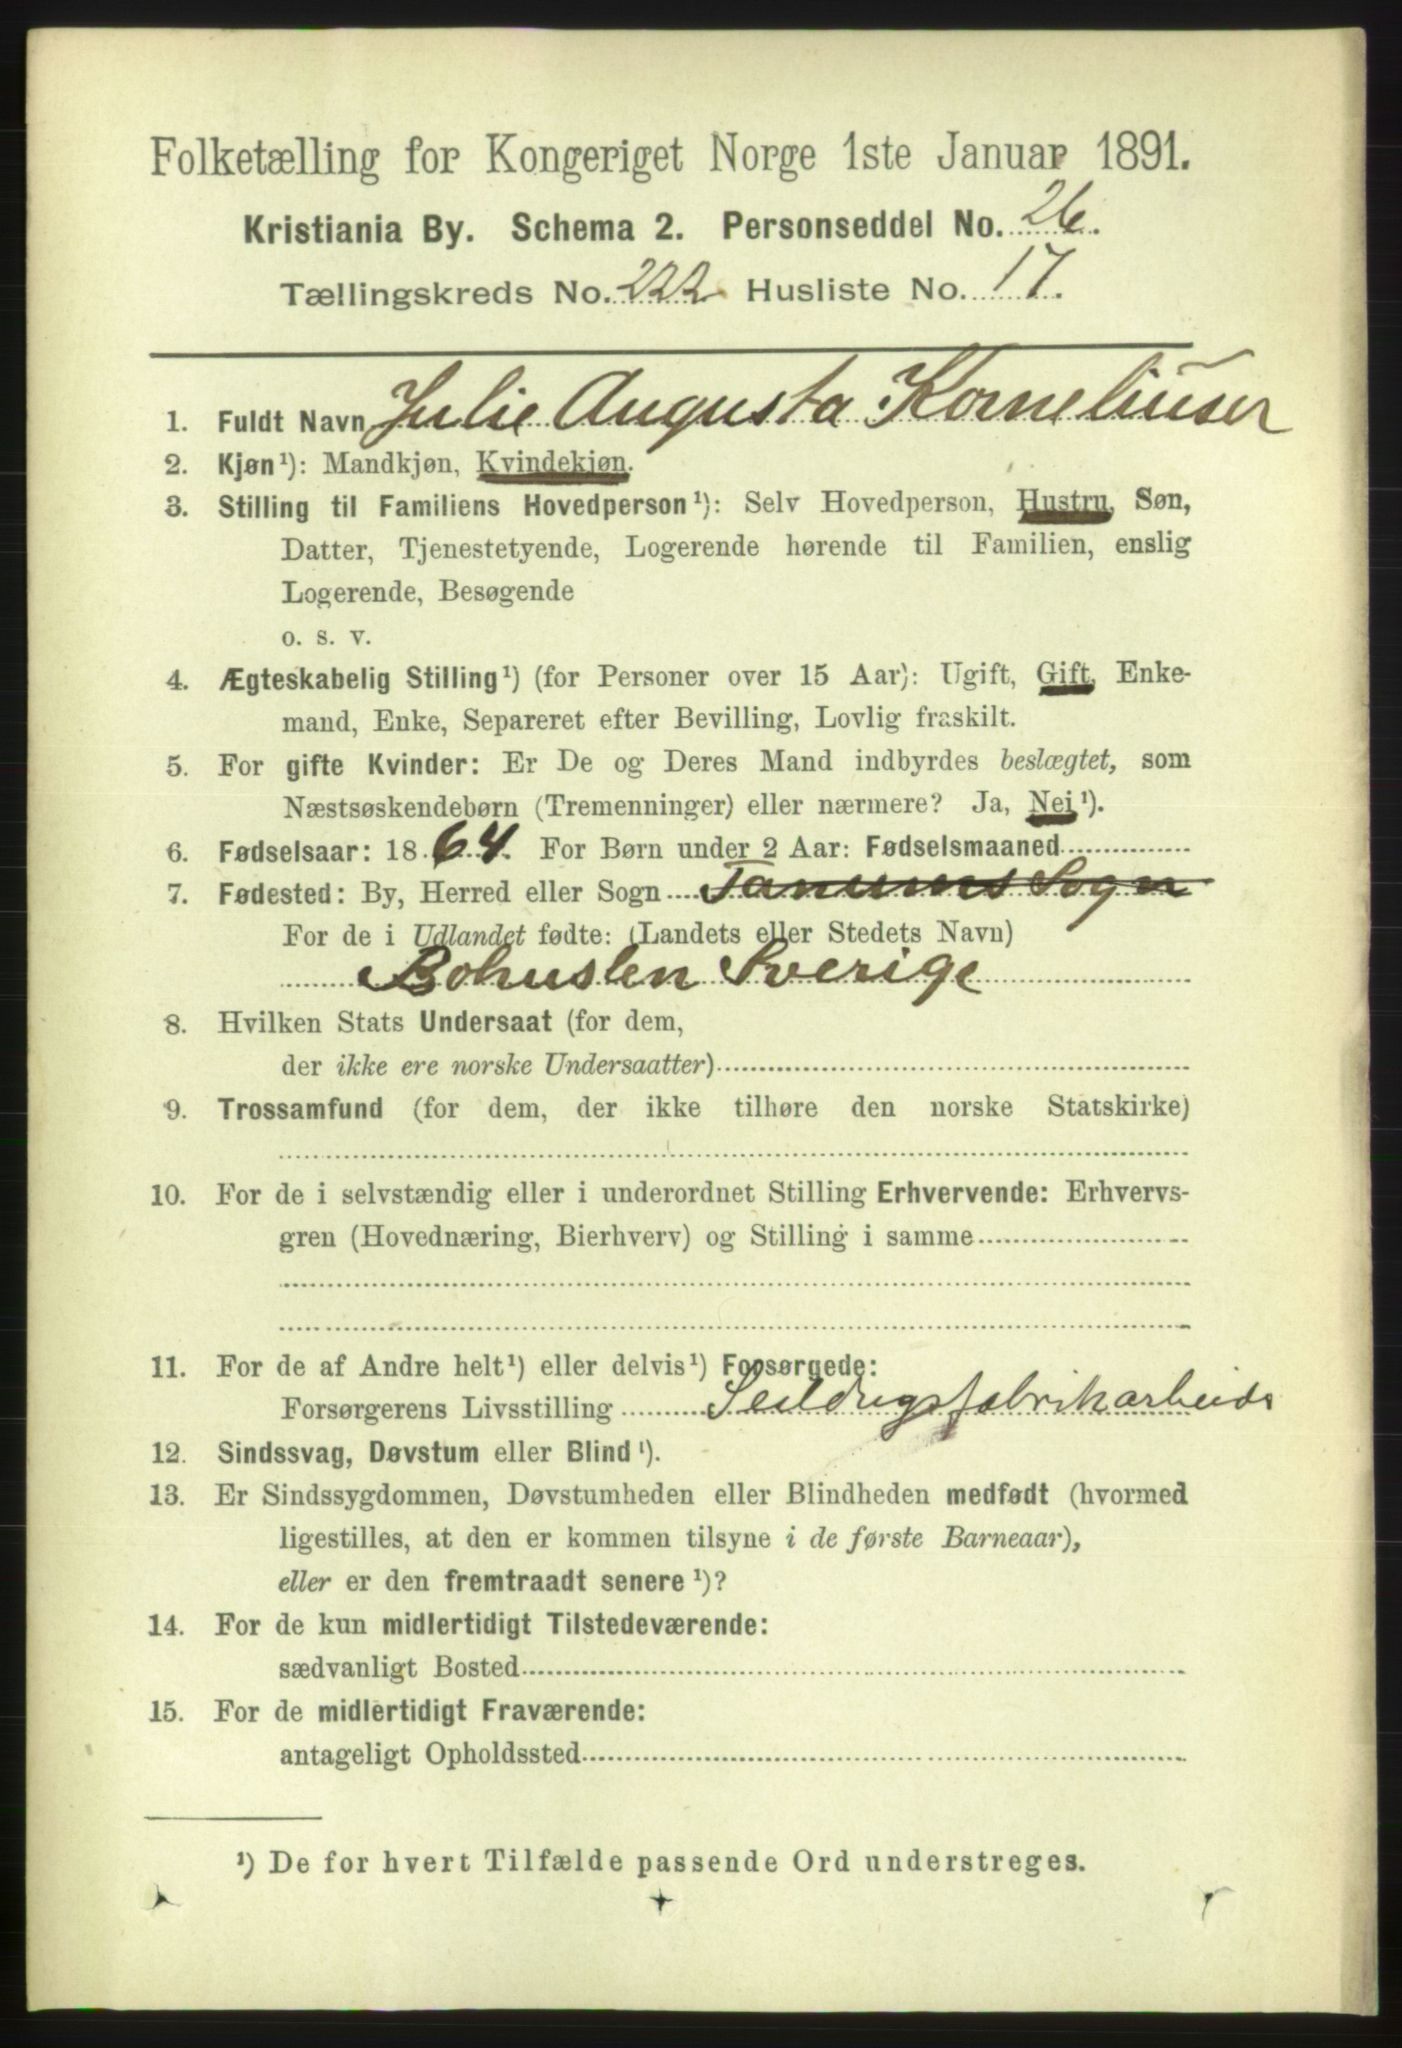 Folketælling for Kongeriget Norge 1ste Januar 1891.
Kristiania By. Schema 2. Personseddel No. 26.
Tællingskreds No. 222 Husliste No. 17.
1. Fuldt Navn Julie Augusta Korneliuser
2. Kjøn¹): Mandkjøn, Kvindekjøn.
3. Stilling til Familiens Hovedperson¹): Selv Hovedperson, Hustru, Søn,
Datter, Tjenestetyende, Logerende hørende til Familien, enslig
Logerende, Besøgende
o. s. v.
4. Ægteskabelig Stilling¹) (for Personer over 15 Aar): Ugift, Gift, Enke-
mand, Enke, Separeret efter Bevilling, Lovlig fraskilt.
5. For gifte Kvinder: Er De og Deres Mand indbyrdes beslægtet, som
Næstsøskendebørn (Tremenninger) eller nærmere? Ja, Nei¹).
6. Fødselsaar: 1864. For Børn under 2 Aar: Fødselsmaaned
7. Fødested: By, Herred eller Sogn Tanums Sogn
For de i Udlandet fødte: (Landets eller Stedets Navn)
Bohuslen Sverige
8. Hvilken Stats Undersaat (for dem,
der ikke ere norske Undersaatter)
9. Trossamfund (for dem, der ikke tilhøre den norske Statskirke)
10. For de i selvstændig eller i underordnet Stilling Erhvervende: Erhvervs-
gren (Hovednæring, Bierhverv) og Stilling i samme
11. For de af Andre helt¹) eller delvis¹) Forsørgede:
Forsørgerens Livsstilling Seildugsfabrikarbeids
12. Sindssvag, Døvstum eller Blind¹).
13. Er Sindssygdommen, Døvstumheden eller Blindheden medfødt (hvormed
ligestilles, at den er kommen tilsyne i de første Barneaar),
eller er den fremtraadt senere¹)?
14. For de kun midlertidigt Tilstedeværende:
sædvanligt Bosted
15. For de midlertidigt Fraværende:
antageligt Opholdssted
¹) De for hvert Tilfælde passende Ord understreges.